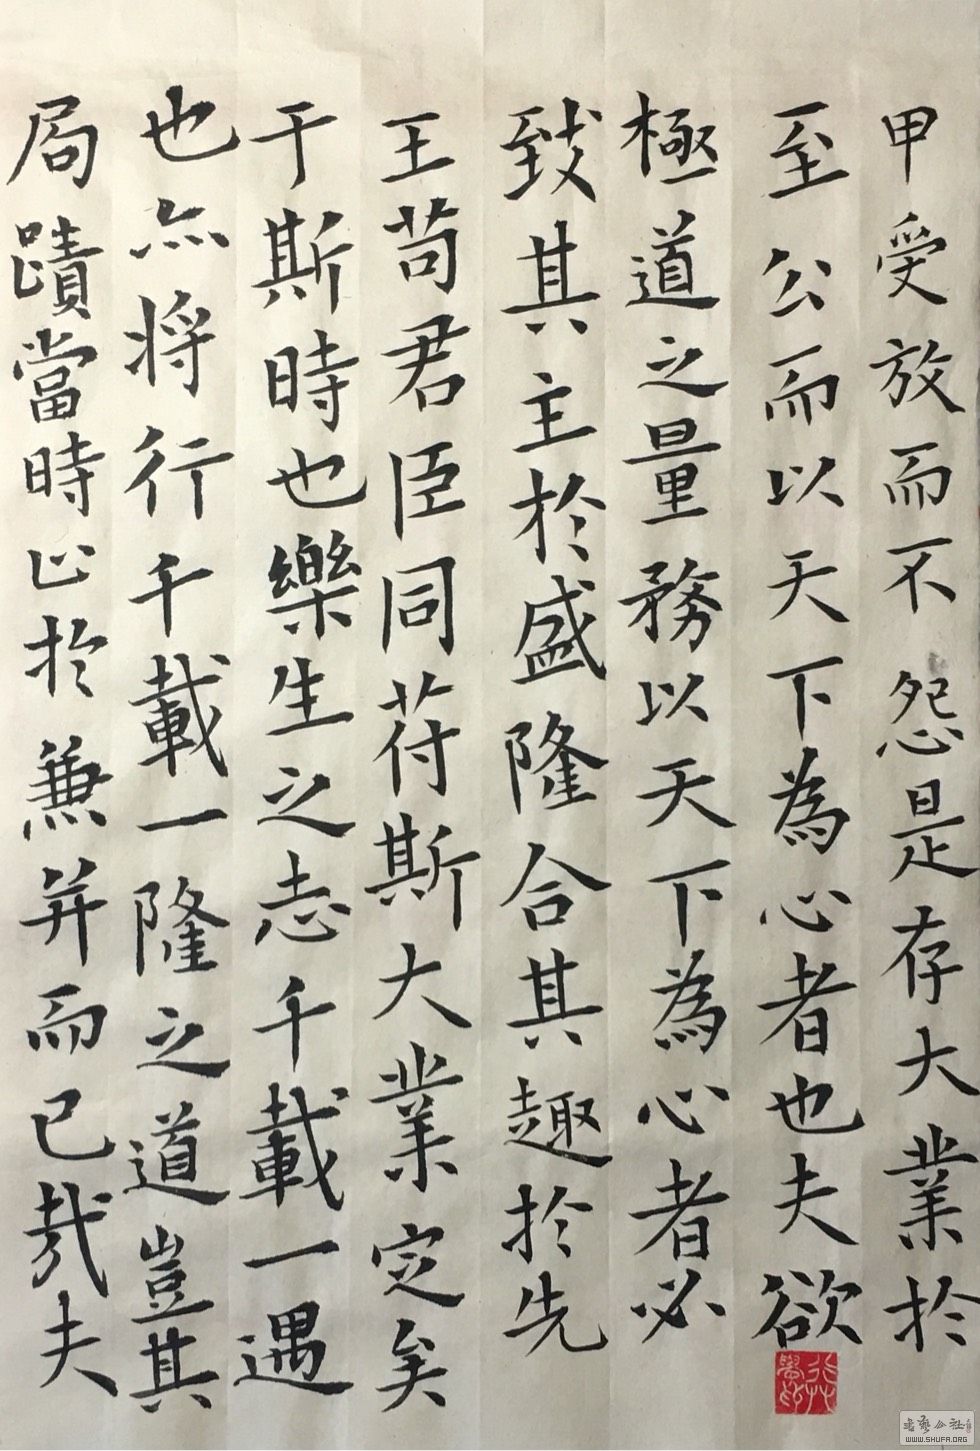 甲受放而不怨是存大業於
至公而以天下為心者也夫欲
極道之量務以天下為心者必
致其主於盛隆合其趣於先
王苟君臣同苻斯大業定矣
于斯時也樂生之志千載一遇
也亦将行千載一隆之道豈其
局蹟當時止於兼并而已哉夫
WWW.SHUFA.ORG